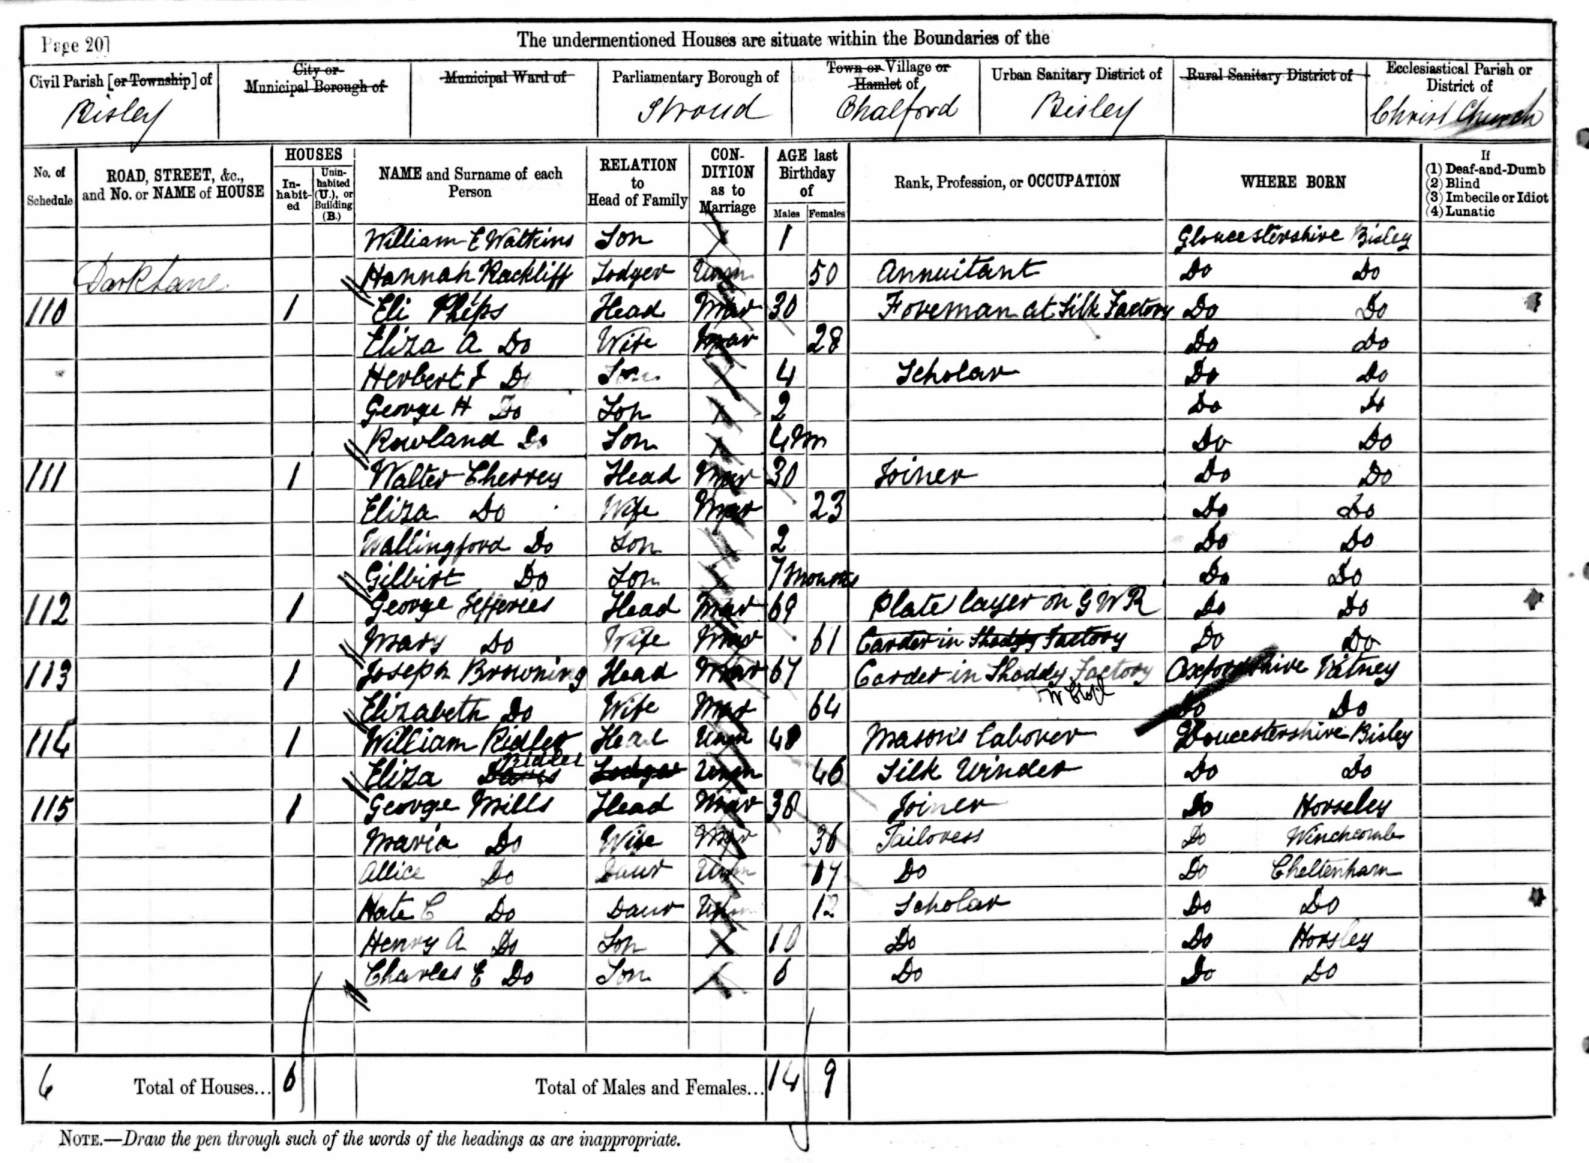 Page 20]
The undermentioned Houses are situate within the Boundaries of the
Civil Parish [or Township] of
City or Municipal Borough of
Municipal Ward of
Parliamentary Borough of
Town or Village or Hamlet of
Urban Sanitary District of
Rural Sanitary District of
Ecclesiastical Parish or District of
Bisley Stroud Chalford Bisley Christ Church
No. of Schedule
ROAD, STREET, &c., and No. or NAME of HOUSE
HOUSES
In-habit-ed
Unin-habited (U.), or Building (B.)
NAME and Surname of each Person
RELATION to Head of Family
CON-DITION as to Marriage
AGE last Birthday of
Males Females
Rank, Profession, or OCCUPATION
WHERE BORN
If
(1) Deaf-and-Dumb
(2) Blind
(3) Imbecile or Idiot
(4) Lunatic
William E Watkins Son 1 Gloucestershire Bisley
Dark Lane Hannah Rackliff Lodger Unm 50 Annuitant Do Do
110 1 Eli Phips Head Mar 30 Foreman at Silk Factory Do Do
Eliza A Do Wife Mar 28 Do Do
Herbert J Do Son 4 Scholar Do Do
George H Do Son 2 Do Do
Rowland Do Son 4m Do Do
111 1 Walter Cherrey Head Mar 30 Joiner Do Do
Eliza Do Wife Mar 23 Do Do
Wallingford Do Son 2 Do Do
Gilbirt Do Son 7 Months Do Do
112 1 George Jefferies Head Mar 69 Plate layer on G W R Do Do
Mary Do Wife Mar 61 Carder in Shoddy Factory Do Do
113 1 Joseph Browning Head Mar 67 Carder in Shoddy Factory Oxfordshire Witney
Elizabeth Do Wife Mar 64 Do Do
114 1 William Ridler Head Unm 48 Mason's Laborer Gloucestershire Bisley
Eliza Davis Ridler Lodger Unm 46 Silk Winder Do Do
115 1 George Mills Head Mar 38 Joiner Do Horseley
Maria Do Wife Mar 36 Tailoress Do Winchcomb
Allice Do Daur Unm 17 Do Do Cheltenham
Kate C Do Daur Unm 12 Scholar Do Do
Henry A Do Son 10 Do Do Horsley
Charles E Do Son 6 Do Do Do
6 Total of Houses... 6 Total of Males and Females... 14 9
NOTE.—Draw the pen through such of the words of the headings as are inappropriate.